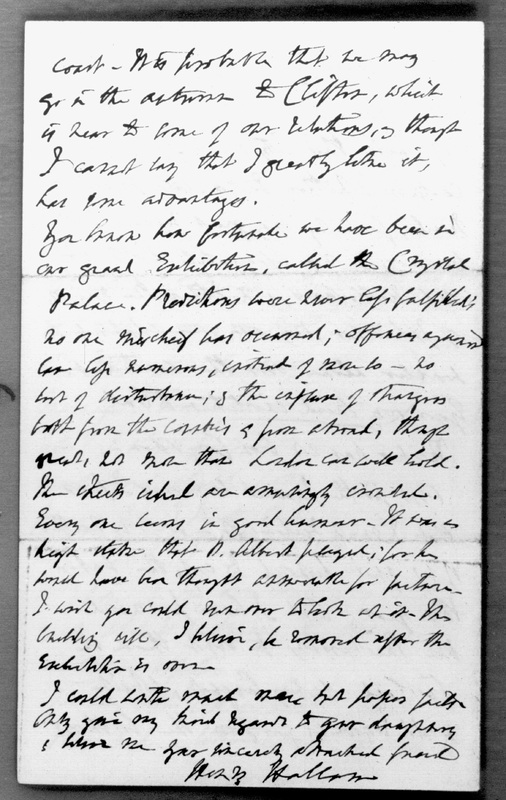 coast - It is probable that we may
go in the autumn to Clifton, which
is near to some of our relations, & though
I cannot say that I greatly like it,
has some advantages.
You know how fortunate we have been in
our grand Exhibition, called the Crystal
Palace. Predictions were never less fulfilled;
no one mischief has occurred; offences against
law less numerous, instead of more so - no
sort of disturbance; & the influx of strangers
both from the country & from abroad, though
great, not more than London can well hold.
The streets indeed are amazingly crowded.
Every one seems in good humour - It was a
high stake that P. Albert played; for he
would have been thought answerable for failure.
I wish you could run over to look at it - The
building will, I believe, be removed after the
Exhibition is over
I could write much more but paper fails
Only give my kind regards to your daughters
& believe me your sincerely attached friend
Henry Hallam